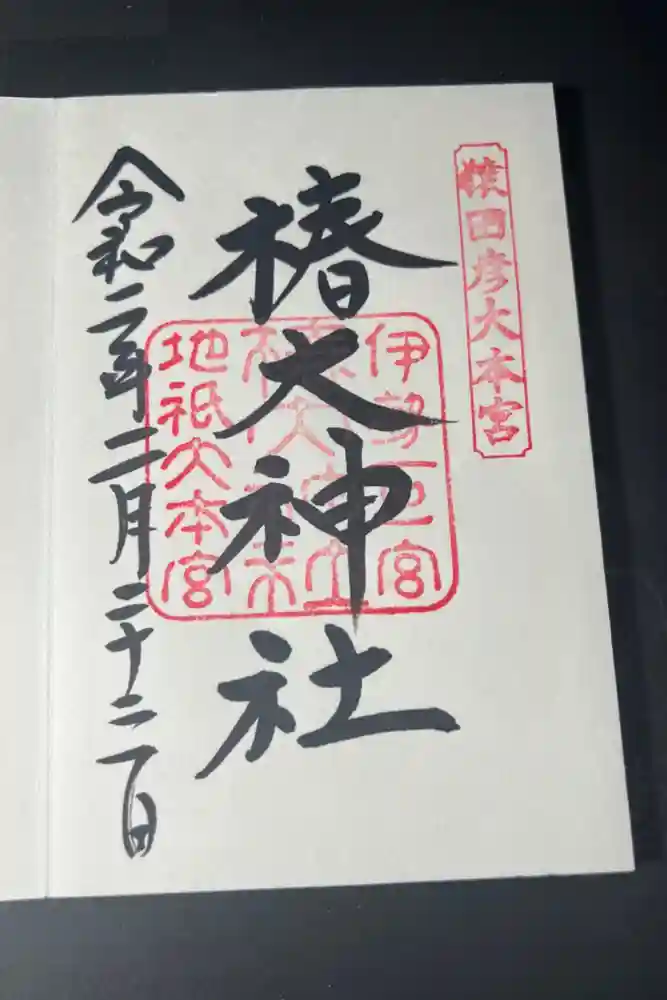 猿田彦大本宮
椿大神社
伊勢一之宮
地祇大本宮
令和二年二月二十二日